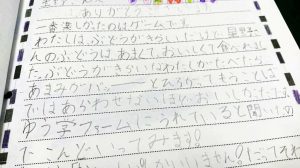 ありがとう
一番楽しかったのはゲームです。
わたしは、ぶどうがきらいだけど、星野さ
んのぶどうはあまくて、おいしくて食べれまし
た。ぶどうがきらいなわたしがたべたら
あまみがバッーーーとひろがってもうことば
ではあらわせないほどおいしかったです。
ゆう学ファームにうれていると聞いて
たこんどいってみます。